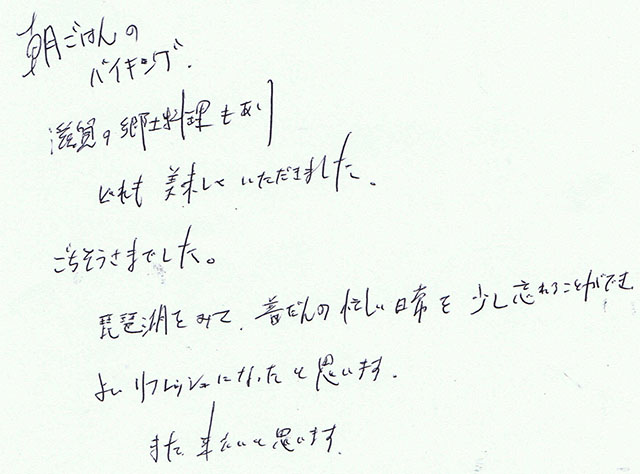 朝ごはんの
バイキング.
滋賀の郷土料理もあり
どれも 美味しく いただきました。
ごちそうさまでした。
琵琶湖をみて、普だんの忙しい日常を 少し忘れることができ
よい リフレッシュになったと思います.
また 来たいと思います.